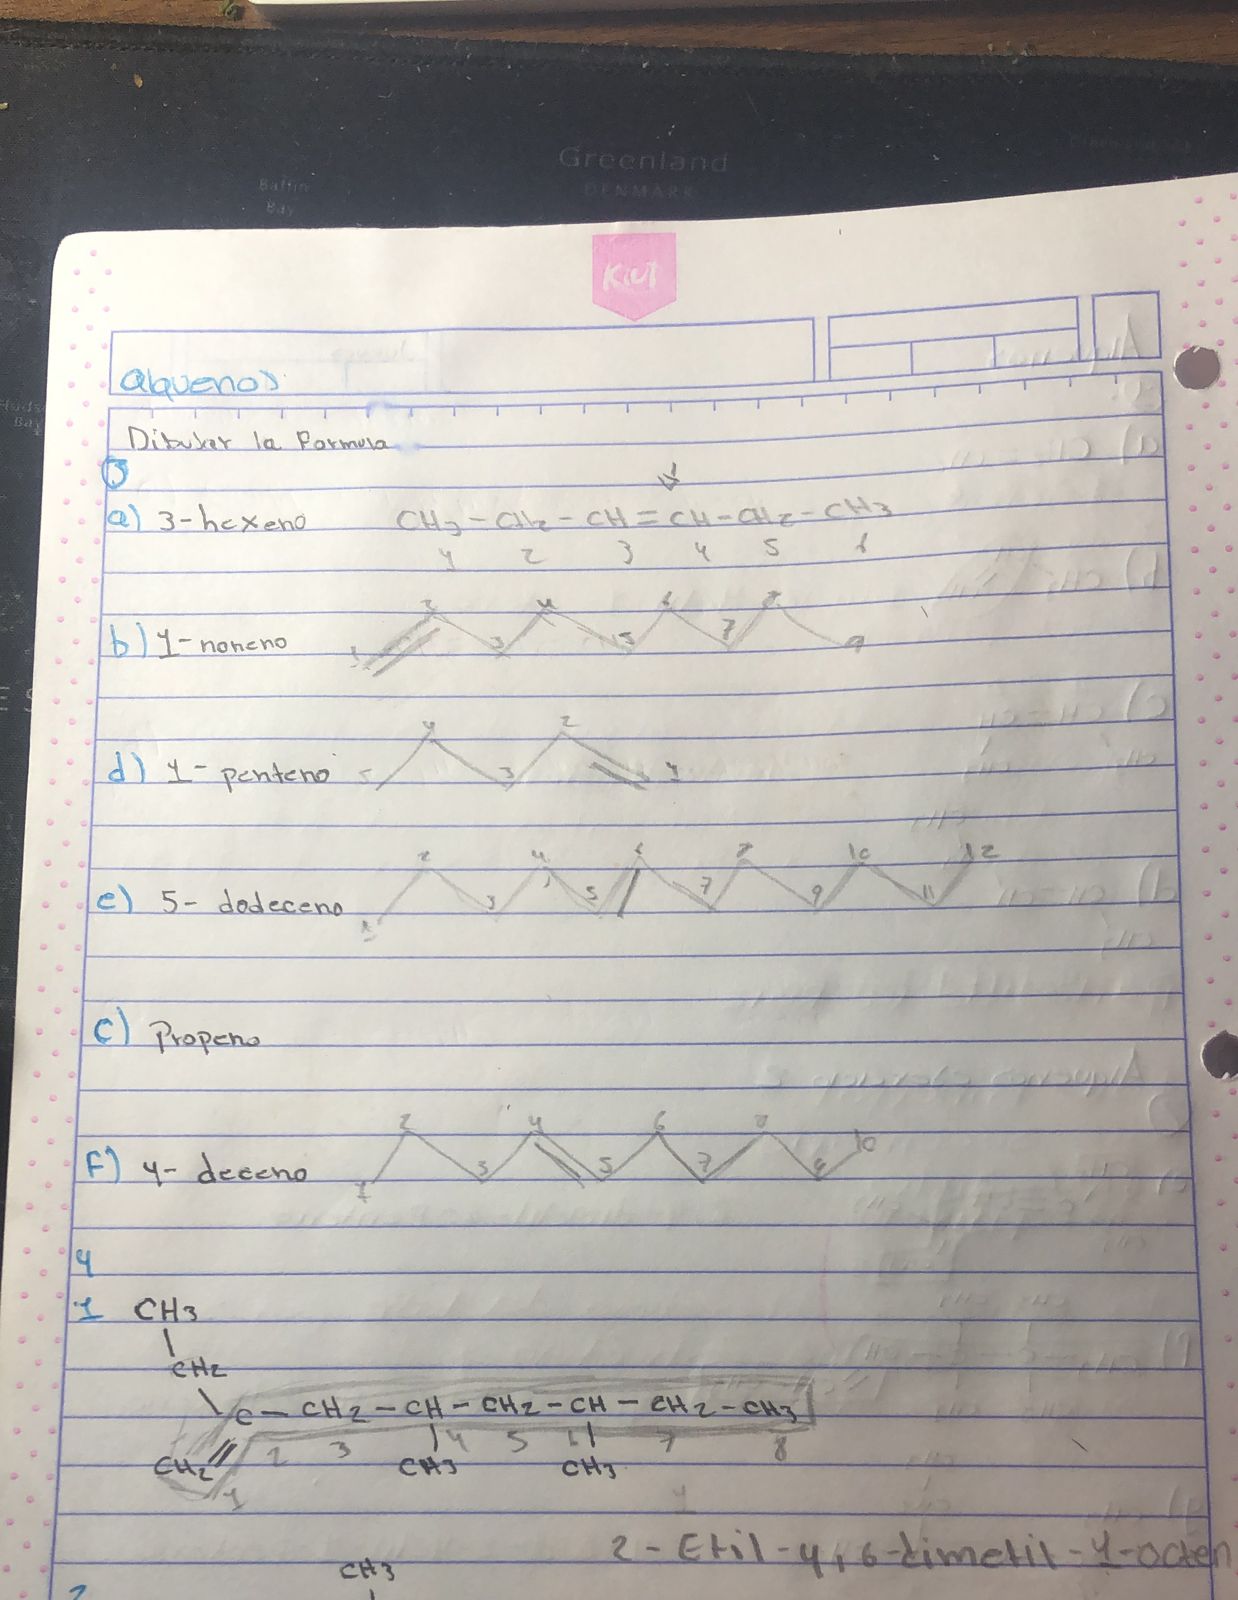 Greenland
DENMARK
Baffin
Bay
Kiut
alquenos
Dibujar la Formula
3
a) 3-hexeno CH3 - CH2 - CH = CH - CH2 - CH3
1 2 3 4 5 6
b) 1-noneno 1 2 3 4 5 6 7 8 9
d) 1-penteno 5 4 3 2 1
e) 5-dodeceno 1 2 3 4 5 6 7 8 9 10 11 12
c) Propeno
F) 4-deceno 1 2 3 4 5 6 7 8 9 10
4
1 CH3
CH2
C - CH2 - CH - CH2 - CH - CH2 - CH3
2 3 4 5 6 7 8
CH2 CH3 CH3
1
2-Etil-4,6-dimetil-1-octen
CH3
2